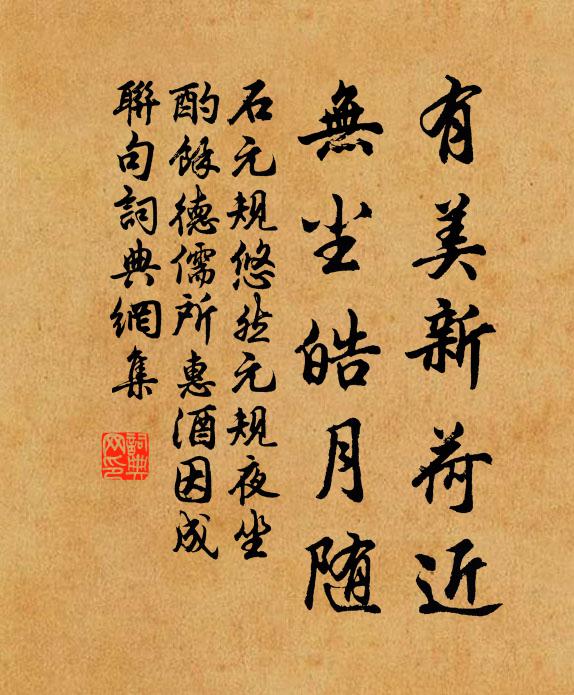 有美新荷近
無尘皓月随
石元規悠然元規夜坐
酌餘德儒所惠酒因成
聯句詞典網集
詞典
网印